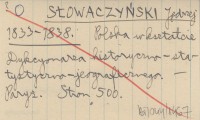 O SŁOWACZYŃSKI Jędrzej
1833-1838. Polska w kształcie
Dykcyonarza historyczno-sta-
tystyczno-geograficznego. —
Paryż. Stron 500.